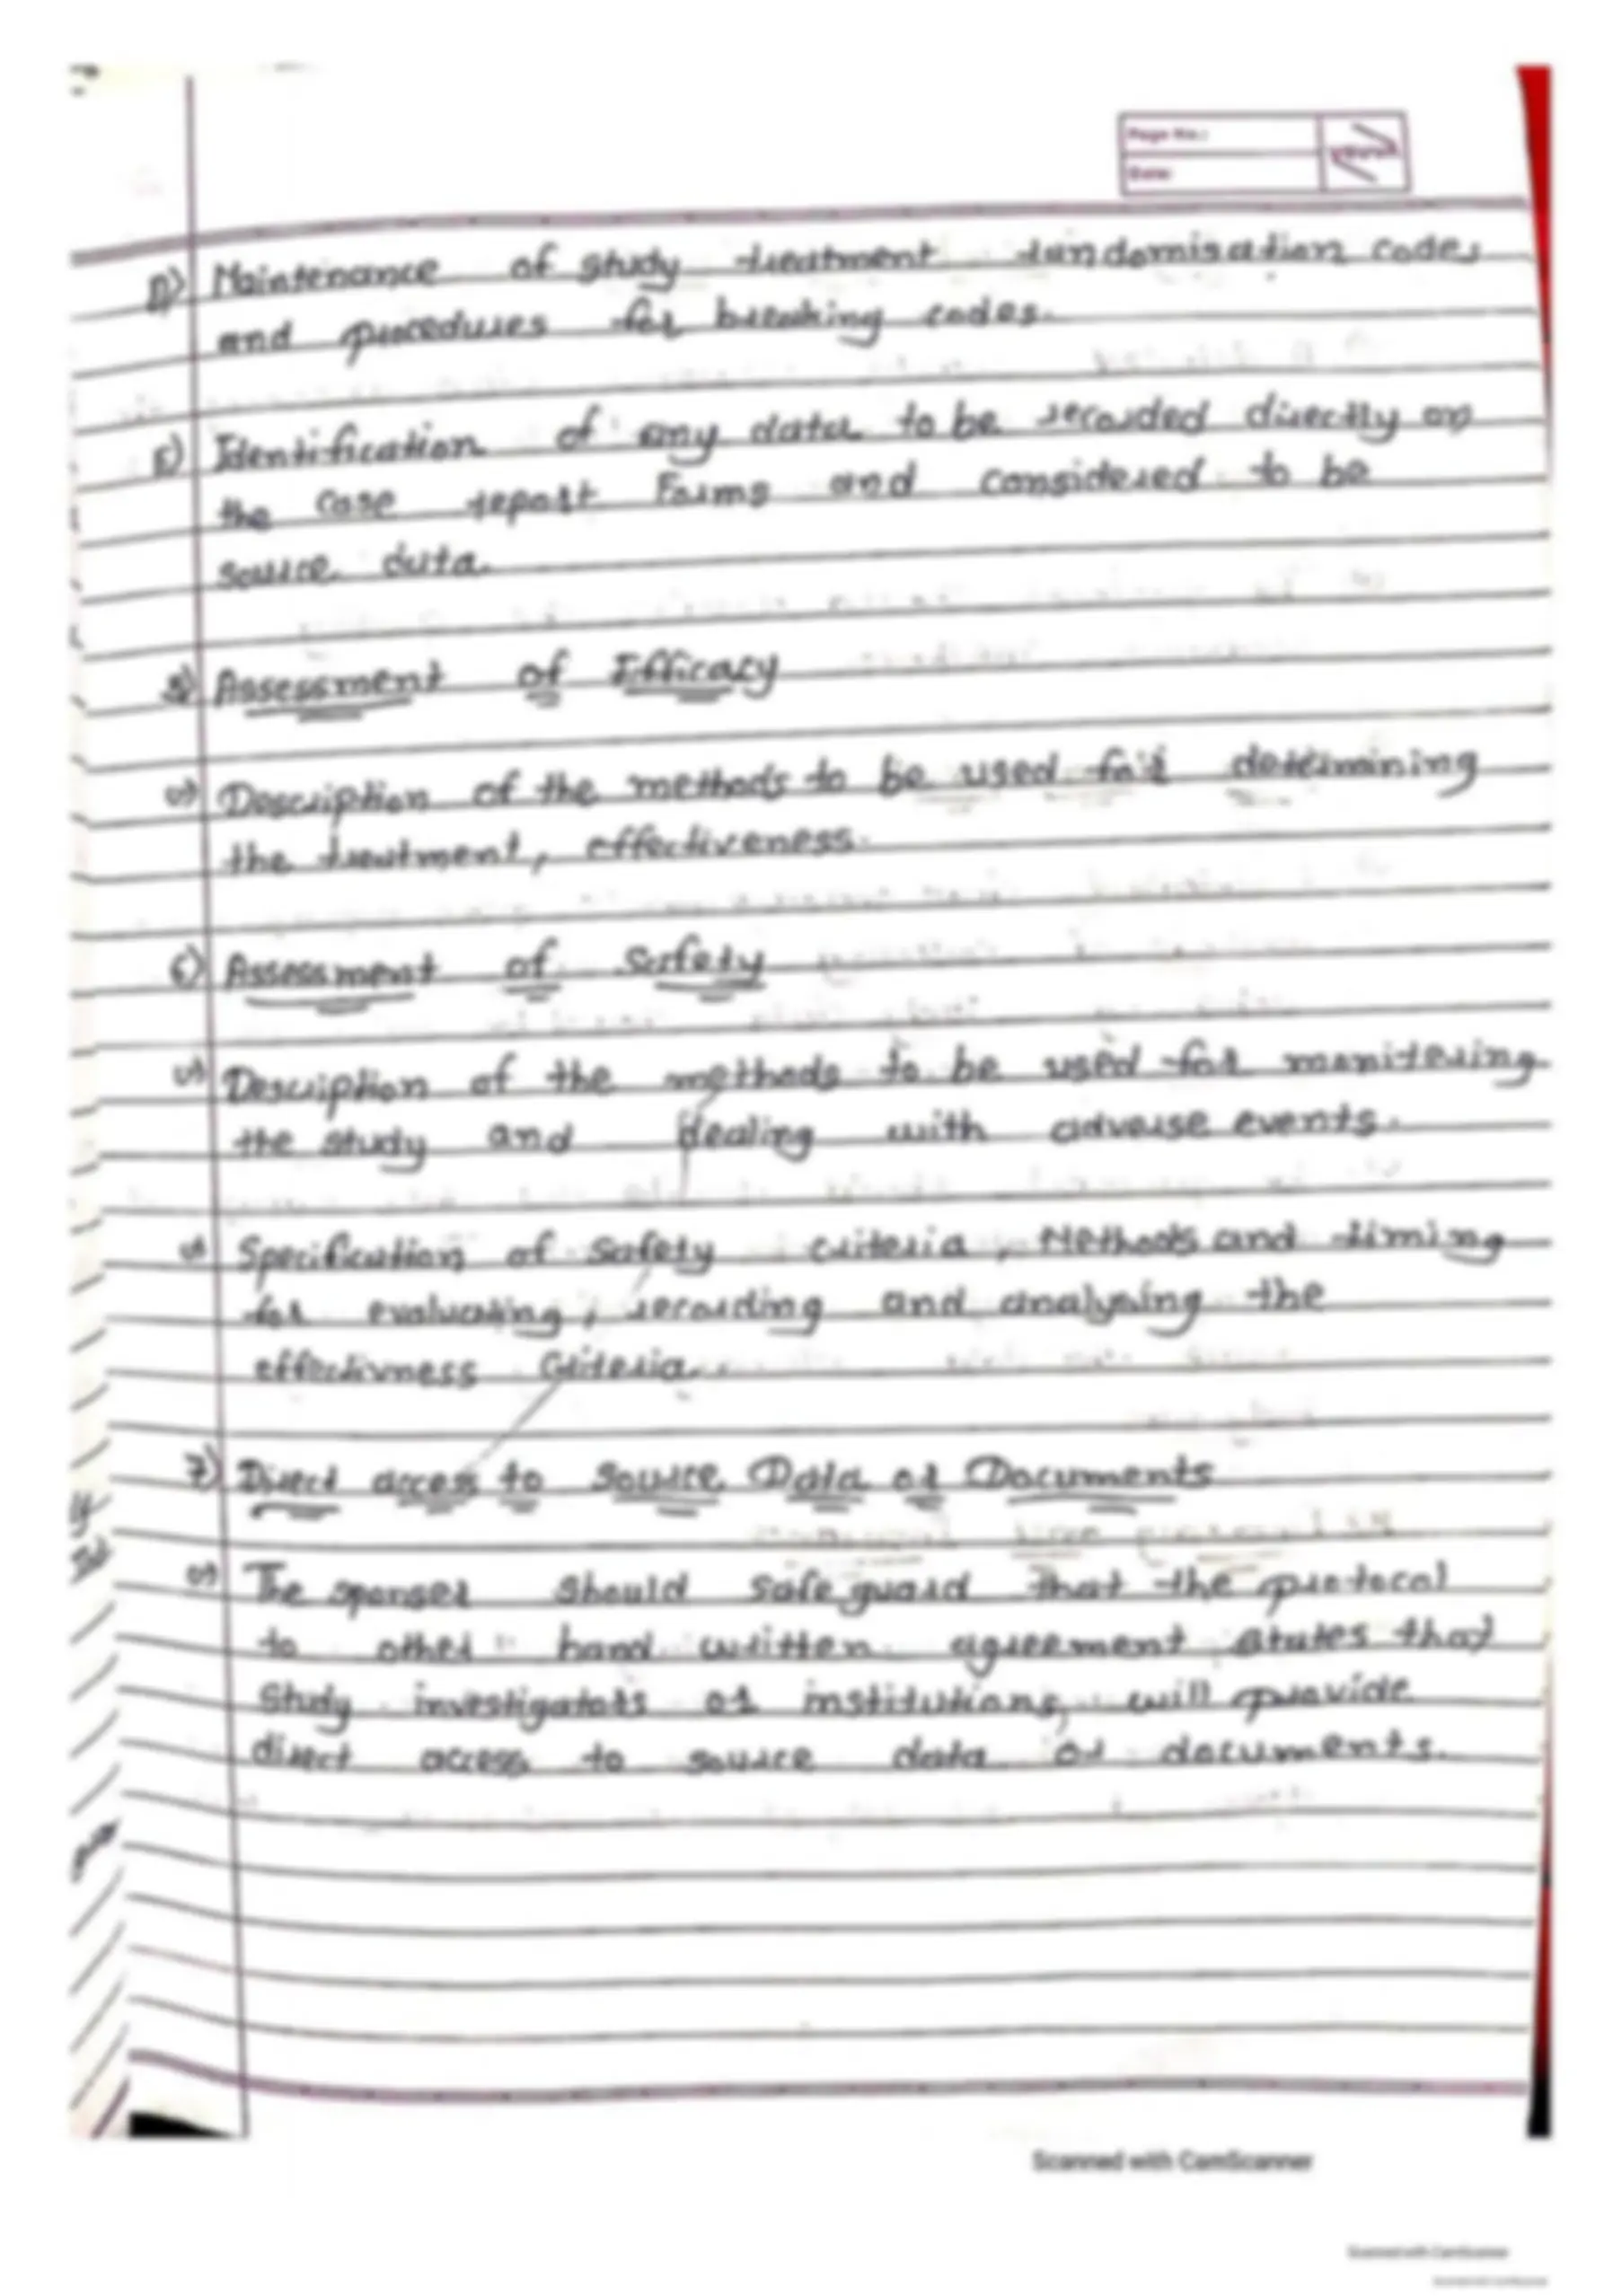 Page No.:
Date:
D) Maintenance of study treatment randomisation codes
and procedures for breaking codes.
E) Identification of any data to be recorded directly on
the case report Forms and considered to be
source data.
Assessment of Efficacy
Description of the methods to be used for determining
the treatment, effectiveness.
6) Assessment of Safety
Description of the methods to be used for monitering
the study and dealing with adverse events.
Specification of safety criteria, Methods and timing
for evaluating, recording and analysing the
effectivness Criteria.
7) Direct access to Source Data or Documents
The sponser should safe guard that the protocol
to other hand written agreement states that
Study investigators or institutions, will provide
direct access to source data or documents.
Scanned with CamScanner
Scanned with CamScanner